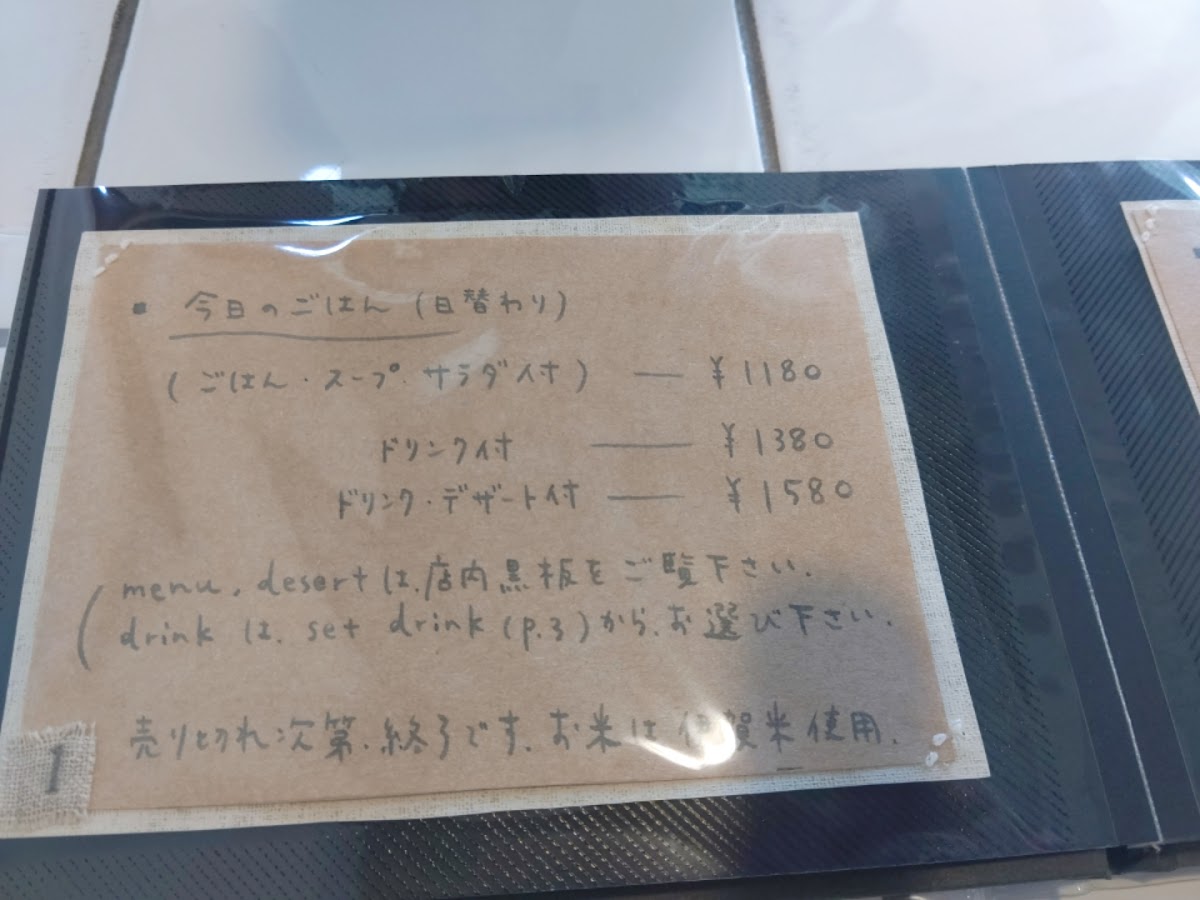 ■ 今日のごはん (日替わり)
(ごはん・スープ・サラダ付) — ¥1180
ドリンク付 — ¥1380
ドリンク・デザート付 — ¥1580
menu, desertは、店内黒板をご覧下さい.
drinkは、set drink (p.3)から、お選び下さい.
売り切れ次第、終了です. お米は伊賀米使用.
1